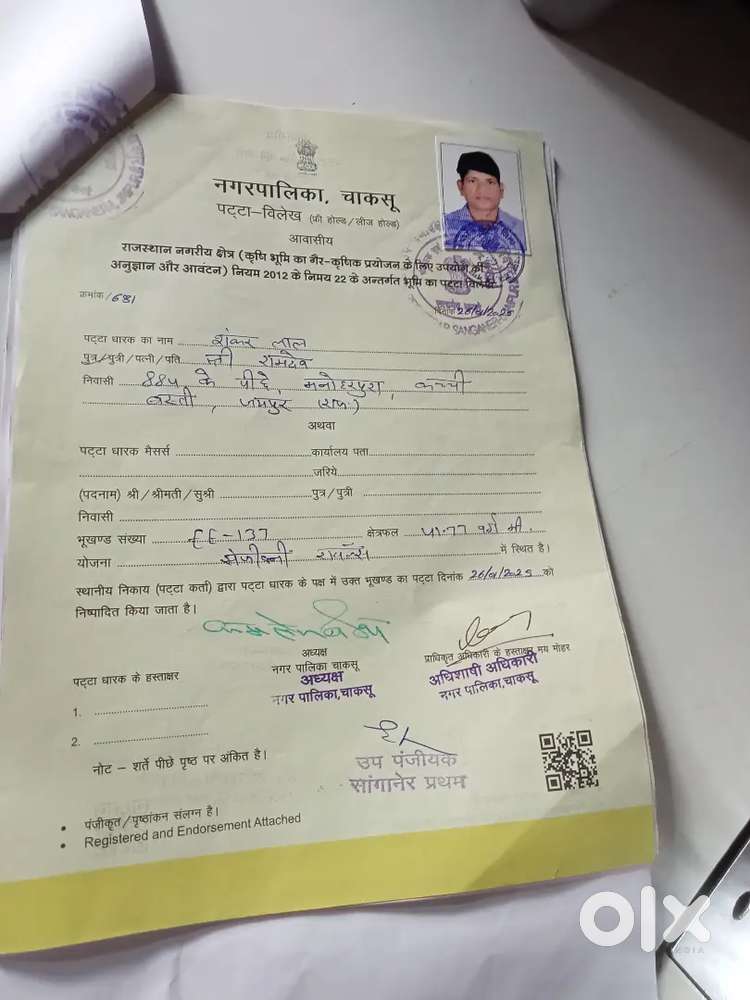 नगरपालिका, चाकसू
पट्टा-विलेख (फ्री होल्ड/लीज होल्ड)
आवासीय
राजस्थान नगरीय क्षेत्र (कृषि भूमि का गैर-कृषिक प्रयोजन के लिए उपयोग की
अनुज्ञान और आवंटन) नियम 2012 के निमय 22 के अन्तर्गत भूमि का पट्टा विलेख
क्रमांक/681
पट्टा धारक का नाम शंकर लाल
पुत्र/पुत्री/पत्नी/पति श्री रामदेव
निवासी 884 के पीछे, मनोहरपुरा, कच्ची
बस्ती, जयपुर (राज.)
अथवा
पट्टा धारक मैसर्स कार्यालय पता
जरिये
(पदनाम) श्री/श्रीमती/सुश्री पुत्र/पुत्री
निवासी
भूखण्ड संख्या EE-137 क्षेत्रफल वर्ग मी.
योजना में स्थित है।
स्थानीय निकाय (पट्टा कर्ता) द्वारा पट्टा धारक के पक्ष में उक्त भूखण्ड का पट्टा दिनांक को
निष्पादित किया जाता है।
अध्यक्ष
नगर पालिका चाकसू
अध्यक्ष
नगर पालिका,चाकसू
प्राधिकृत अधिकारी के हस्ताक्षर मय मोहर
अधिशाषी अधिकारी
नगर पालिका,चाकसू
पट्टा धारक के हस्ताक्षर
1.
2.
नोट – शर्ते पीछे पृष्ठ पर अंकित है।
उप पंजीयक
सांगानेर प्रथम
• पंजीकृत/पृष्ठांकन संलग्न है।
• Registered and Endorsement Attached
olx